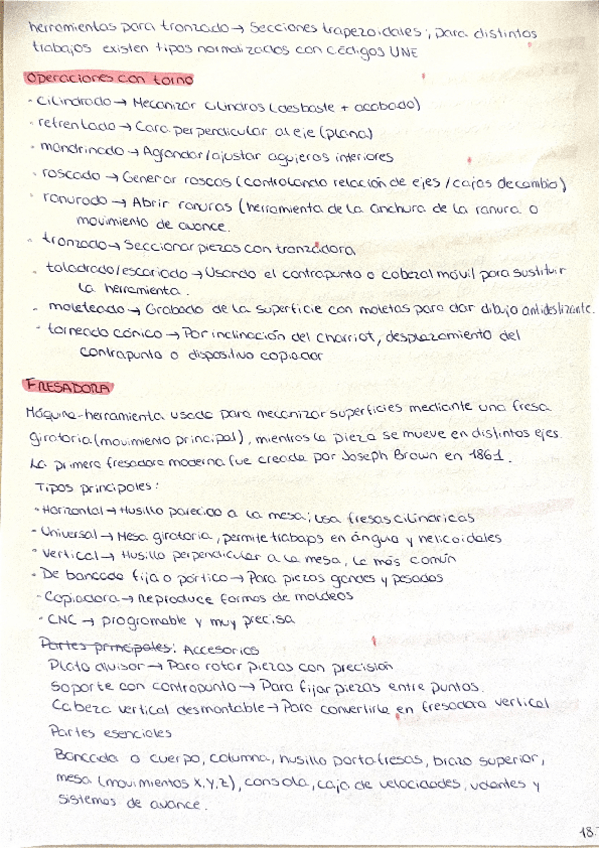 herramientas para tronzado → Secciones trapezoidales; para distintos
trabajos existen tipos normalizados con códigos UNE
Operaciones con torno
- cilindrado → Mecanizar cilindros (desbaste + acabado)
- refrentado → Cara perpendicular al eje (plana)
- mandrinado → Agrandar/ajustar agujeros interiores
- roscado → Generar roscas (controlando relación de ejes / cajas de cambio)
- ranurado → Abrir ranuras (herramienta de la anchura de la ranura o
movimiento de avance.
- tronzado → Seccionar piezas con tronzadora
- taladrado/escariado → Usando el contrapunto o cabezal móvil para sustituir
la herramienta.
- moleteado → Grabado de la superficie con moletas para dar dibujo antideslizante.
- torneado cónico → Por inclinación del charriot, desplazamiento del
contrapunto o dispositivo copiador
FRESADORA
Máquina-herramienta usada para mecanizar superficies mediante una fresa
giratoria (movimiento principal), mientras la pieza se mueve en distintos ejes.
La primera fresadora moderna fue creada por Joseph Brown en 1861.
Tipos principales:
- Horizontal → Husillo parecido a la mesa; usa fresas cilíndricas
- Universal → Mesa giratoria, permite trabajos en ángulo y helicoidales
- Vertical → Husillo perpendicular a la mesa, la más común
- De bancada fija o pórtico → Para piezas gandes y pesados
- Copiadora → Reproduce formas de moldeos
- CNC → programable y muy precisa
Partes principales: Accesorios
Plato divisor → Para rotar piezas con precisión
Soporte con contrapunto → Para fijar piezas entre puntos.
Cabeza vertical desmontable → Para convertirla en fresadora vertical
Partes esenciales
Bancada o cuerpo, columna, husillo portafresas, brazo superior,
mesa (movimientos X,Y,Z), consola, caja de velocidades, volantes y
sistemas de avance.